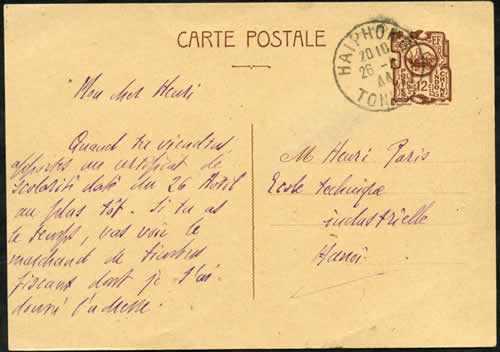 CARTE POSTALE
HAIPHON
20 10
26
44
TON
12
INDOCHINE
Mon cher Henri
Quand tu viendras,
apportes un certificat de
scolarité daté du 26 Avril
au plus tôt. Si tu as
le temps, vas voir le
marchand de timbres
fiscaux dont je t'ai
donné l'adresse.
M Henri Paris
Ecole technique
industrielle
Hanoï